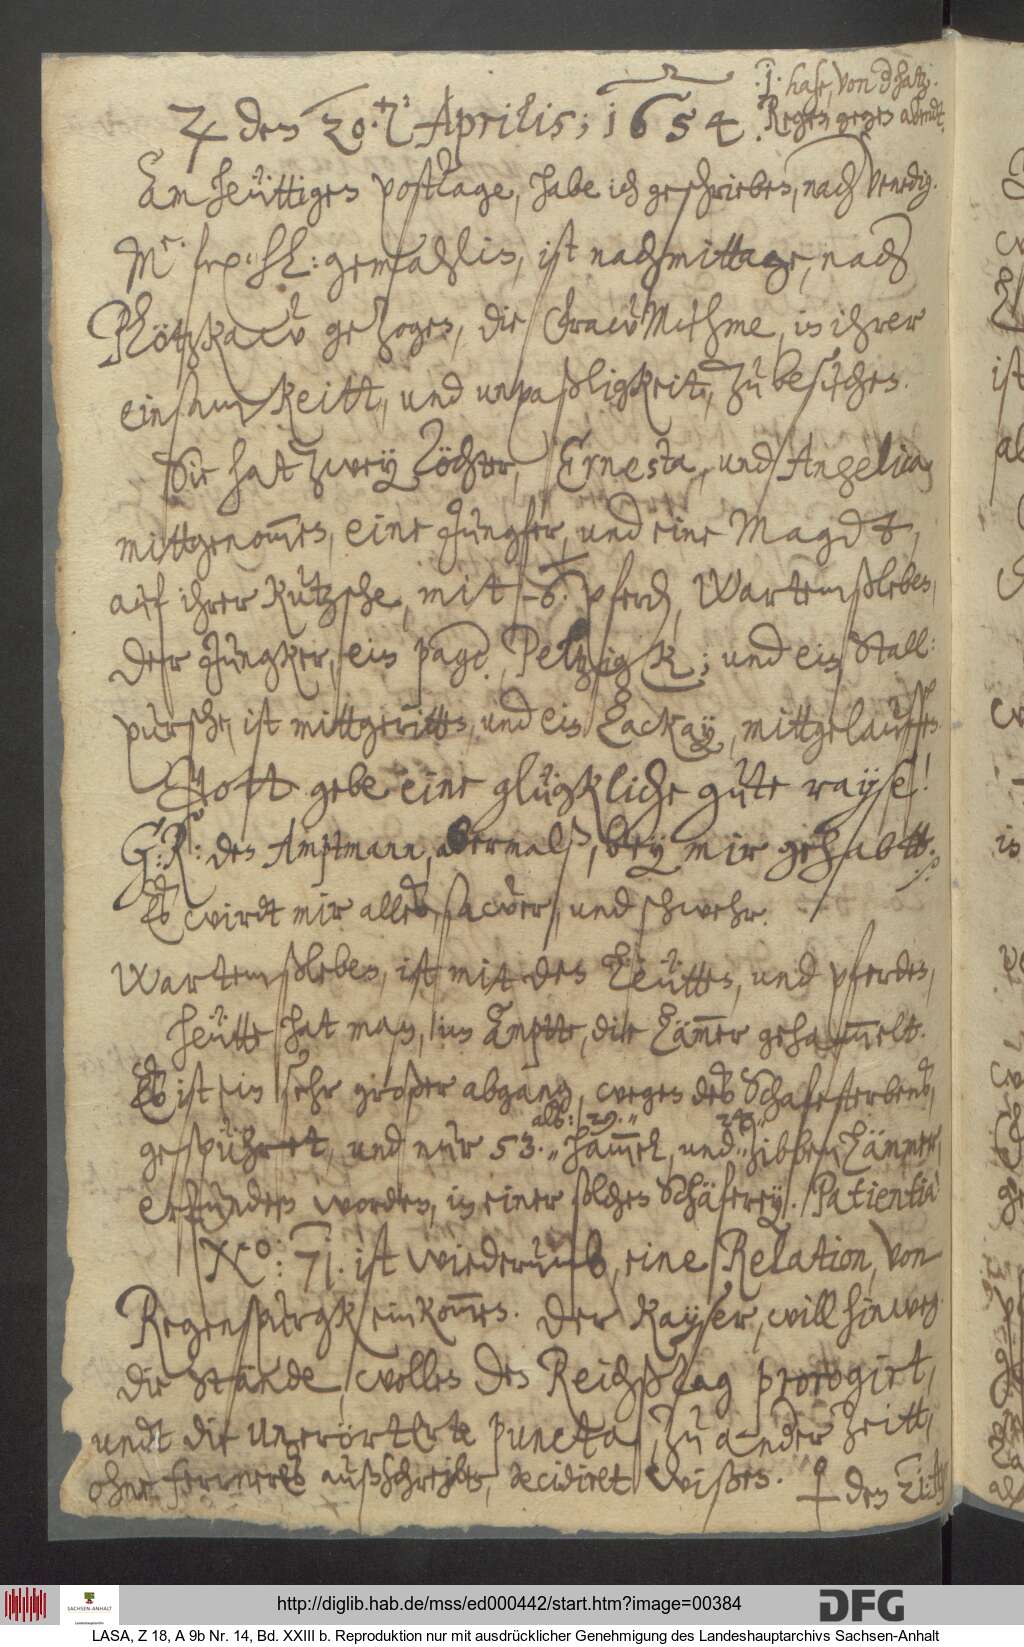 1. hase, von d hatz.
♃ den 20.ten Aprilis; 1654. Regen gegen abendt.
Am heüttigen posttage, habe ich geschrieben, nach Venedig.
Mr. fr: hl: gemahlin, ist nachmittage, nach
Plötzkaw gezogen, die Fraw Muhme, in ihrer
einsamkeitt, und unpaßligkeit, zu besuchen.
Sie hat zwey Töchter, Ernesta, und Angelica,
mittgenom̅en, eine Jungfer, und eine Magdt,
auf ihrer kutzsche, mit -6- pferd, Wartemßleben,
der Jungker, ein page, Peltzigk; und ein Stall:
pursche, ist mittgeritten, und ein Lackay, mittgelauffen.
Gott gebe eine glügkliche gute rayse!
G: R: den Amptmann, abermalß, bey mir gehabtt.
Es wirdt mir alles, sawer, und schwehr.
Wartemßleben, ist mit den Leütten, und pferden,
heütte hat man, im Ampte, die Läm̅er gesam̅elt.
Es ist ein sehr großer abgang, wegen des Schafesterbens,
als: 29. 24
gespühret, und nur 53. häm̅el, und zibben Lämmer,
erfunden worden, in einer solchen Schäferey. Patientia!
Xro: 71. ist wiederumb, eine Relation, von
Regenspurgk einkom̅en. Der Kayser, will hinweg
die Stände, wollen den Reichßtag prorogirt,
undt die unerörterte puncta, zu ander Zeitt,
ohne ferneres außschreiben, decidirt wißen. ♀ den 21:
http://diglib.hab.de/mss/ed000442/start.htm?image=00384
SACHSEN-ANHALT
DFG
LASA, Z 18, A 9b Nr. 14, Bd. XXIII b. Reproduktion nur mit ausdrücklicher Genehmigung des Landeshauptarchivs Sachsen-Anhalt